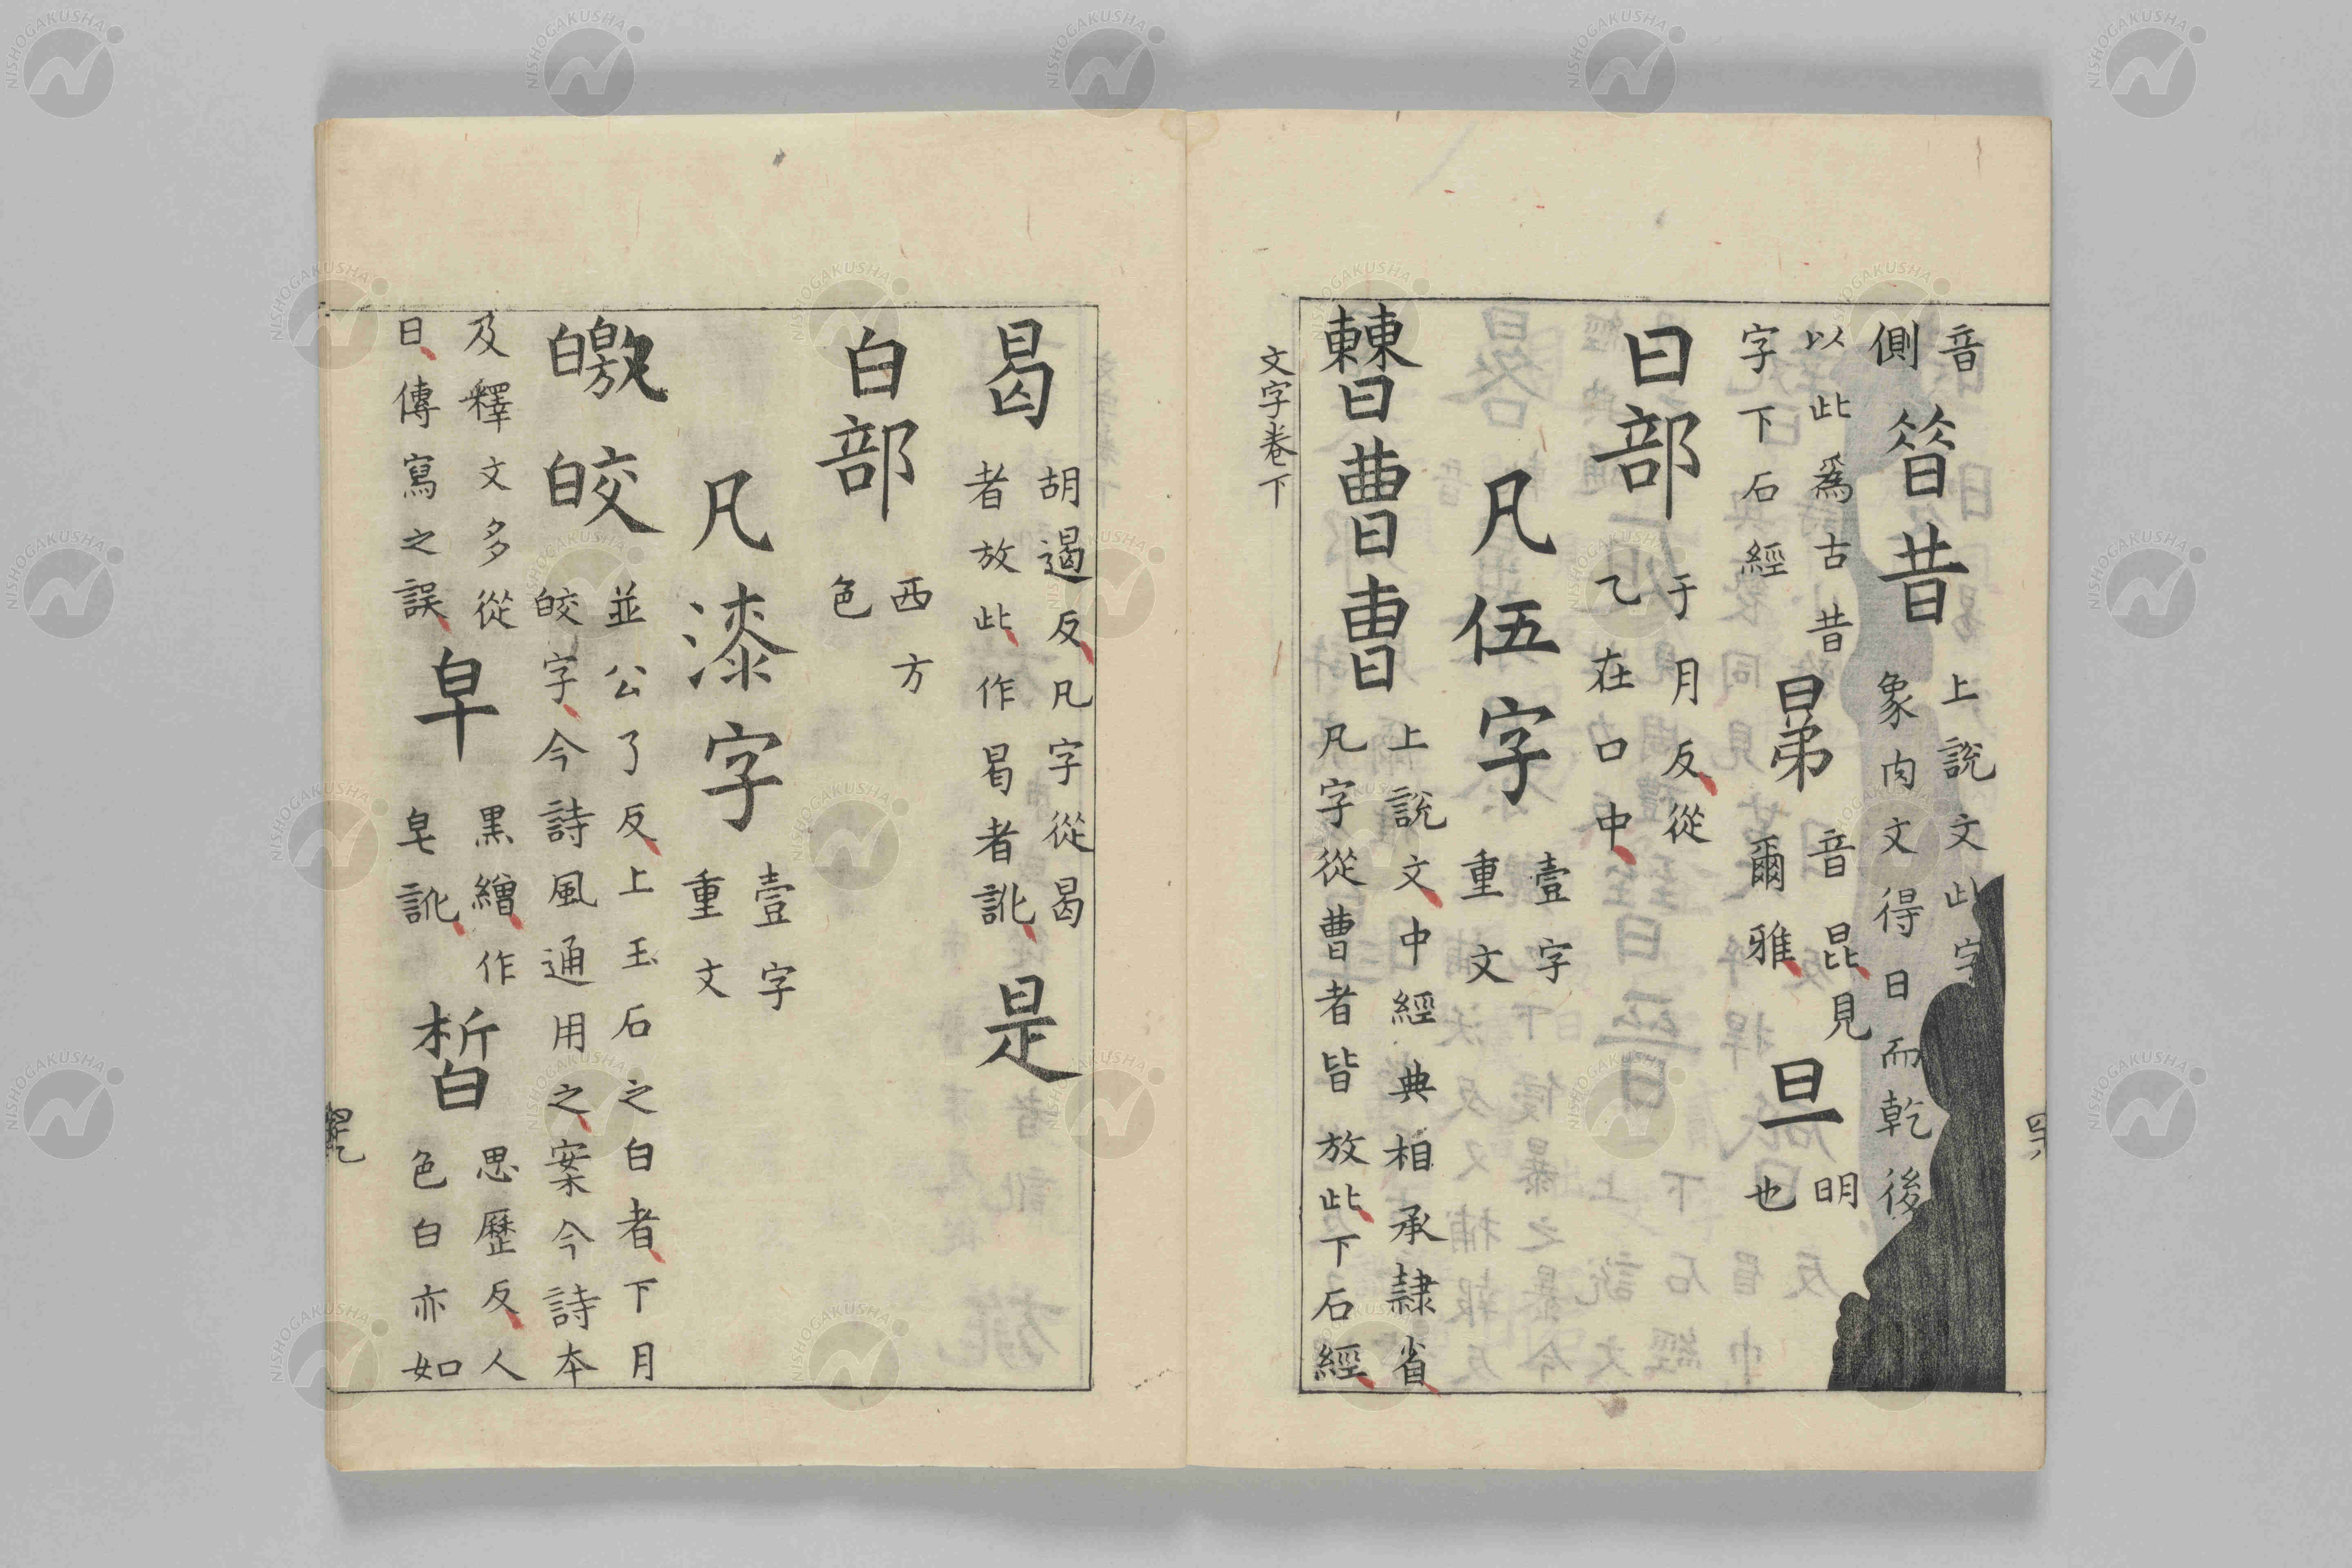 音
側
昔
上說文此字
象肉文得日而乾後
以此爲古昔
字下石經
音昆見
爾雅
旦
明
也
曰部
于月反從
乙在口中
凡伍字
壹字
重文
曹
上說文中經典相承隸省
凡字從曹者皆放此下石經
文字卷下
曷
胡遏反凡字從曷
者放此作曷者訛
是
白部
西方
色
凡漆字
壹字
重文
皦皎
並公了反上玉石之白者下月
皎字今詩風通用之案今詩本
及釋文多從
日傳寫之誤
皁
黑繒作
皂訛
皙
思歷反人
色白亦如
NISHOGAKUSHA